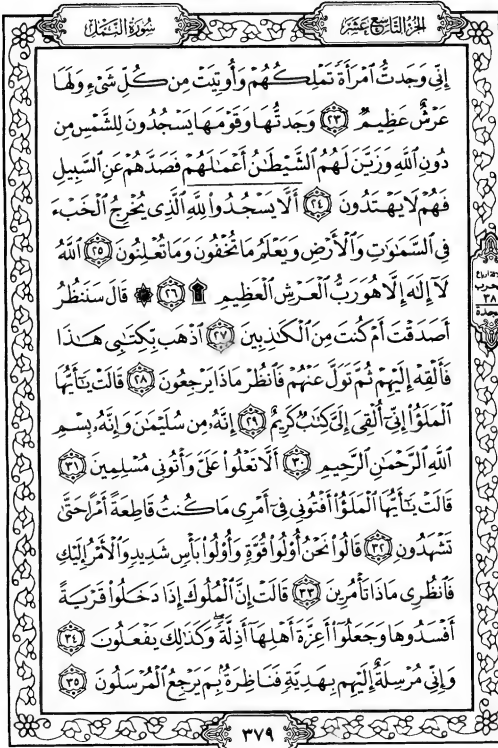 سُورَةُ النَّمْلِ
الجُزْءُ التَّاسِعَ عَشَرَ
إِنِّي وَجَدتُّ ٱمْرَأَةً تَمْلِكُهُمْ وَأُوتِيَتْ مِن كُلِّ شَىْءٍ وَلَهَا
عَرْشٌ عَظِيمٌ ٢٣ وَجَدتُّهَا وَقَوْمَهَا يَسْجُدُونَ لِلشَّمْسِ مِن
دُونِ ٱللَّهِ وَزَيَّنَ لَهُمُ ٱلشَّيْطَٰنُ أَعْمَٰلَهُمْ فَصَدَّهُمْ عَنِ ٱلسَّبِيلِ
فَهُمْ لَا يَهْتَدُونَ ٢٤ أَلَّا يَسْجُدُوا۟ لِلَّهِ ٱلَّذِى يُخْرِجُ ٱلْخَبْءَ
فِى ٱلسَّمَٰوَٰتِ وَٱلْأَرْضِ وَيَعْلَمُ مَا تُخْفُونَ وَمَا تُعْلِنُونَ ٢٥ ٱللَّهُ
لَآ إِلَٰهَ إِلَّا هُوَ رَبُّ ٱلْعَرْشِ ٱلْعَظِيمِ ۩ ٢٦ ۞ قَالَ سَنَنظُرُ
أَصَدَقْتَ أَمْ كُنتَ مِنَ ٱلْكَٰذِبِينَ ٢٧ ٱذْهَب بِّكِتَٰبِى هَٰذَا
فَأَلْقِهْ إِلَيْهِمْ ثُمَّ تَوَلَّ عَنْهُمْ فَٱنظُرْ مَاذَا يَرْجِعُونَ ٢٨ قَالَتْ يَٰٓأَيُّهَا
ٱلْمَلَؤُا۟ إِنِّىٓ أُلْقِىَ إِلَىَّ كِتَٰبٌ كَرِيمٌ ٢٩ إِنَّهُۥ مِن سُلَيْمَٰنَ وَإِنَّهُۥ بِسْمِ
ٱللَّهِ ٱلرَّحْمَٰنِ ٱلرَّحِيمِ ٣٠ أَلَّا تَعْلُوا۟ عَلَىَّ وَأْتُونِى مُسْلِمِينَ ٣١
قَالَتْ يَٰٓأَيُّهَا ٱلْمَلَؤُا۟ أَفْتُونِى فِىٓ أَمْرِى مَا كُنتُ قَاطِعَةً أَمْرًا حَتَّىٰ
تَشْهَدُونِ ٣٢ قَالُوا۟ نَحْنُ أُو۟لُوا۟ قُوَّةٍ وَأُو۟لُوا۟ بَأْسٍ شَدِيدٍ وَٱلْأَمْرُ إِلَيْكِ
فَٱنظُرِى مَاذَا تَأْمُرِينَ ٣٣ قَالَتْ إِنَّ ٱلْمُلُوكَ إِذَا دَخَلُوا۟ قَرْيَةً
أَفْسَدُوهَا وَجَعَلُوٓا۟ أَعِزَّةَ أَهْلِهَآ أَذِلَّةً ۖ وَكَذَٰلِكَ يَفْعَلُونَ ٣٤
وَإِنِّى مُرْسِلَةٌ إِلَيْهِم بِهَدِيَّةٍ فَنَاظِرَةٌۢ بِمَ يَرْجِعُ ٱلْمُرْسَلُونَ ٣٥
٣٧٩
٣٨